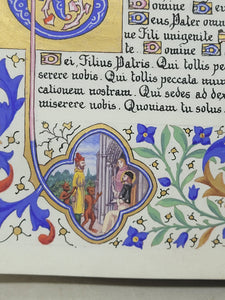 Domine
Deus Pater omni
ne Fili unigenite
Domine D
ei, Filius Patris. Qui tollis
serere nobis. Qui tollis peccata mu
cationem nostram. Qui sedes ad dex
miserere nobis. Quoniam tu solus